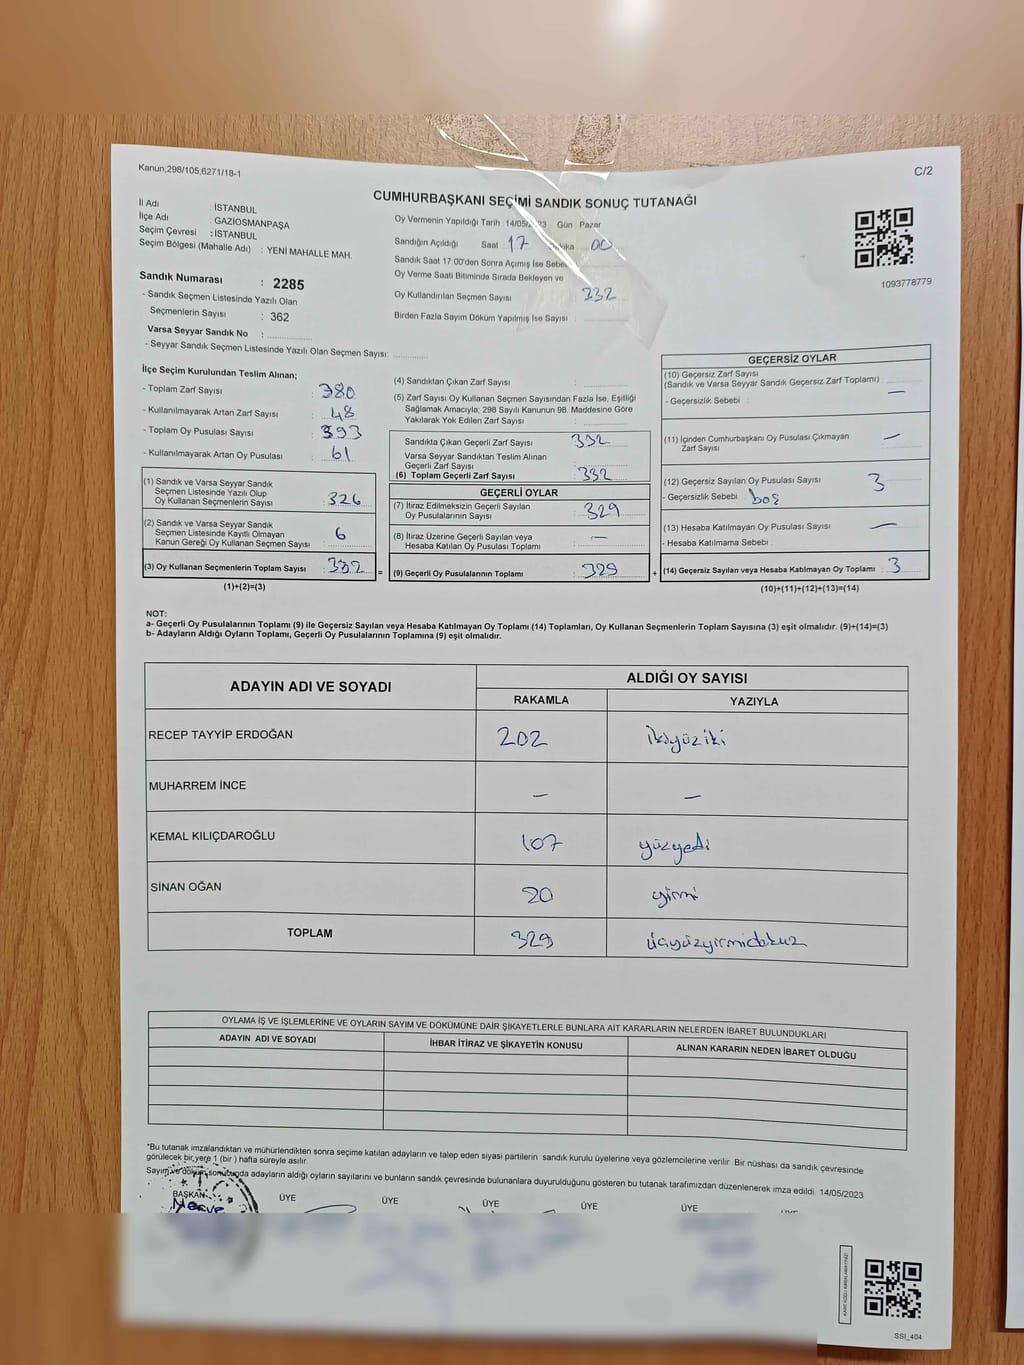 Kanun;298/105;6271/18-1
C/2
CUMHURBAŞKANI SEÇİMİ SANDIK SONUÇ TUTANAĞI
İl Adı : İSTANBUL
İlçe Adı : GAZİOSMANPAŞA
Seçim Çevresi : İSTANBUL
Seçim Bölgesi (Mahalle Adı) : YENİ MAHALLE MAH.
Sandık Numarası : 2285
- Sandık Seçmen Listesinde Yazılı Olan
Seçmenlerin Sayısı : 362
Varsa Seyyar Sandık No :
- Seyyar Sandık Seçmen Listesinde Yazılı Olan Seçmen Sayısı:
Oy Vermenin Yapıldığı Tarih : 14/05/ 23 Gün : Pazar
Sandığın Açıldığı Saat 17 00
Sandık Saat 17:00'den Sonra Açımış İse
Oy Verme Saati Bitiminde Sırada Bekleyen ve
Oy Kullandırılan Seçmen Sayısı : 332
Birden Fazla Sayım Döküm Yapılmış İse Sayısı :
1093778779
İlçe Seçim Kurulundan Teslim Alınan;
- Toplam Zarf Sayısı : 380
- Kullanılmayarak Artan Zarf Sayısı : 48
- Toplam Oy Pusulası Sayısı : 393
- Kullanılmayarak Artan Oy Pusulası : 61
(1) Sandık ve Varsa Seyyar Sandık
Seçmen Listesinde Yazılı Olup
Oy Kullanan Seçmenlerin Sayısı : 326
(2) Sandık ve Varsa Seyyar Sandık
Seçmen Listesinde Kayıtlı Olmayan
Kanun Gereği Oy Kullanan Seçmen Sayısı : 6
(3) Oy Kullanan Seçmenlerin Toplam Sayısı : 332 =
(1)+(2)=(3)
(4) Sandıktan Çıkan Zarf Sayısı :
(5) Zarf Sayısı Oy Kullanan Seçmen Sayısından Fazla İse, Eşitliği
Sağlamak Amacıyla; 298 Sayılı Kanunun 98. Maddesine Göre
Yakılarak Yok Edilen Zarf Sayısı :
Sandıkta Çıkan Geçerli Zarf Sayısı : 332
Varsa Seyyar Sandıktan Teslim Alınan
Geçerli Zarf Sayısı :
(6) Toplam Geçerli Zarf Sayısı : 332
GEÇERLİ OYLAR
(7) İtiraz Edilmeksizin Geçerli Sayılan
Oy Pusulalarının Sayısı : 329
(8) İtiraz Üzerine Geçerli Sayılan veya
Hesaba Katılan Oy Pusulası Toplamı : —
(9) Geçerli Oy Pusulalarının Toplamı : 329 +
GEÇERSİZ OYLAR
(10) Geçersiz Zarf Sayısı
(Sandık ve Varsa Seyyar Sandık Geçersiz Zarf Toplamı) :
- Geçersizlik Sebebi : —
(11) İçinden Cumhurbaşkanı Oy Pusulası Çıkmayan
Zarf Sayısı : —
(12) Geçersiz Sayılan Oy Pusulası Sayısı : 3
- Geçersizlik Sebebi : boş
(13) Hesaba Katılmayan Oy Pusulası Sayısı : —
- Hesaba Katılmama Sebebi :
(14) Geçersiz Sayılan veya Hesaba Katılmayan Oy Toplamı : 3
(10)+(11)+(12)+(13)=(14)
NOT:
a- Geçerli Oy Pusulalarının Toplamı (9) ile Geçersiz Sayılan veya Hesaba Katılmayan Oy Toplamı (14) Toplamları, Oy Kullanan Seçmenlerin Toplam Sayısına (3) eşit olmalıdır. (9)+(14)=(3)
b- Adayların Aldığı Oyların Toplamı, Geçerli Oy Pusulalarının Toplamına (9) eşit olmalıdır.
ADAYIN ADI VE SOYADI ALDIĞI OY SAYISI
RAKAMLA YAZIYLA
RECEP TAYYİP ERDOĞAN 202 İkiyüziki
MUHARREM İNCE — —
KEMAL KILIÇDAROĞLU 107 yüzyedi
SİNAN OĞAN 20 yirmi
TOPLAM 329 üçyüzyirmidokuz
OYLAMA İŞ VE İŞLEMLERİNE VE OYLARIN SAYIM VE DÖKÜMÜNE DAİR ŞİKAYETLERLE BUNLARA AİT KARARLARIN NELERDEN İBARET BULUNDUKLARI
ADAYIN ADI VE SOYADI İHBAR İTİRAZ VE ŞİKAYETİN KONUSU ALINAN KARARIN NEDEN İBARET OLDUĞU
*Bu tutanak imzalandıktan ve mühürlendikten sonra seçime katılan adayların ve talep eden siyasi partilerin sandık kurulu üyelerine veya gözlemcilerine verilir. Bir nüshası da sandık çevresinde
görülecek bir yere 1 (bir ) hafta süreyle asılır.
Sayım ve döküm sonucunda adayların aldığı oyların sayılarını ve bunların sandık çevresinde bulunanlara duyurulduğunu gösteren bu tutanak tarafımızdan düzenlenerek imza edildi. 14/05/2023
BAŞKAN ÜYE ÜYE ÜYE ÜYE ÜYE
Merve
SSI_404